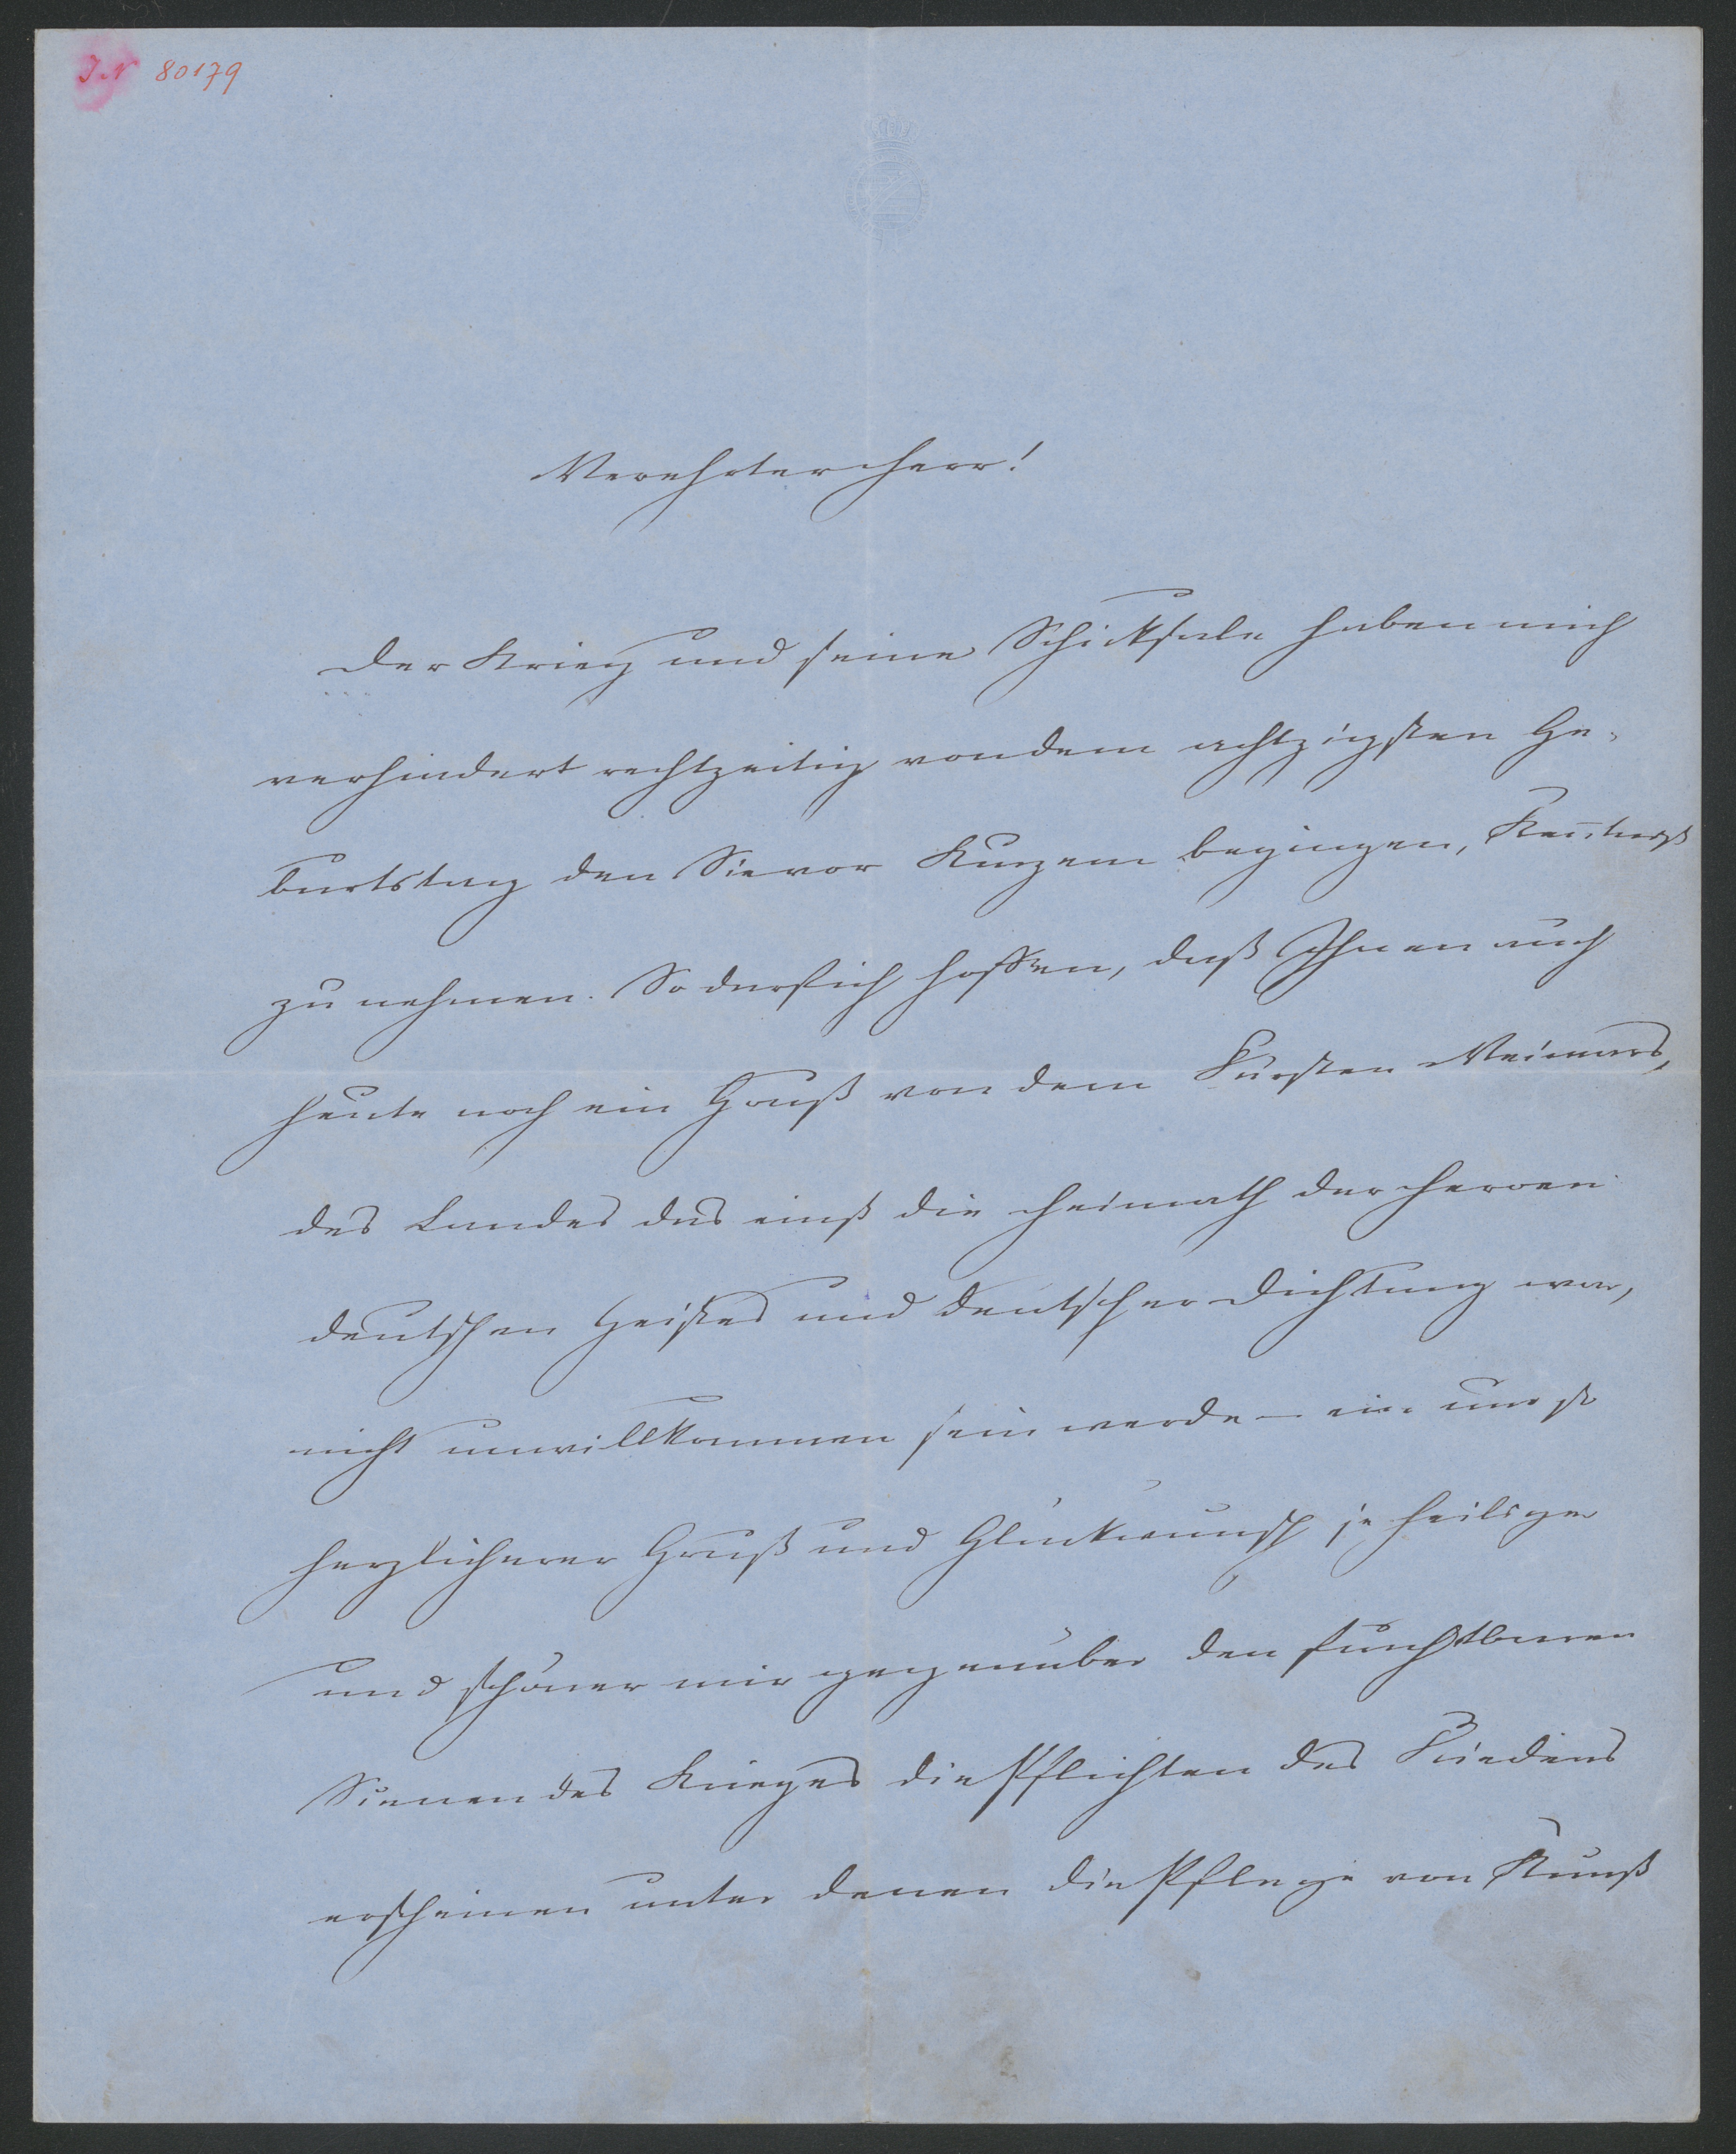 I.N 80179
Verehrter Herr!
Der Krieg und seine Schicksale haben mich
verhindert rechtzeitig von dem achtzigsten Ge-
burtstag den Sie vor Kurzem begingen, Kenntniß
zu nehmen. So darf ich hoffen, daß Ihnen auch
heute noch ein Gruß von dem Fürsten Weimars,
des Landes das einst die Heimath der Heroen
deutschen Geistes und deutscher Dichtung war,
nicht unwillkommen sein werde – ein um so
herzlicherer Gruß und Glückwunsch je heiliger
und schöner mir gegenüber den furchtbaren
Scenen des Krieges die Pflichten des Friedens
erscheinen unter denen die Pflege von Kunst